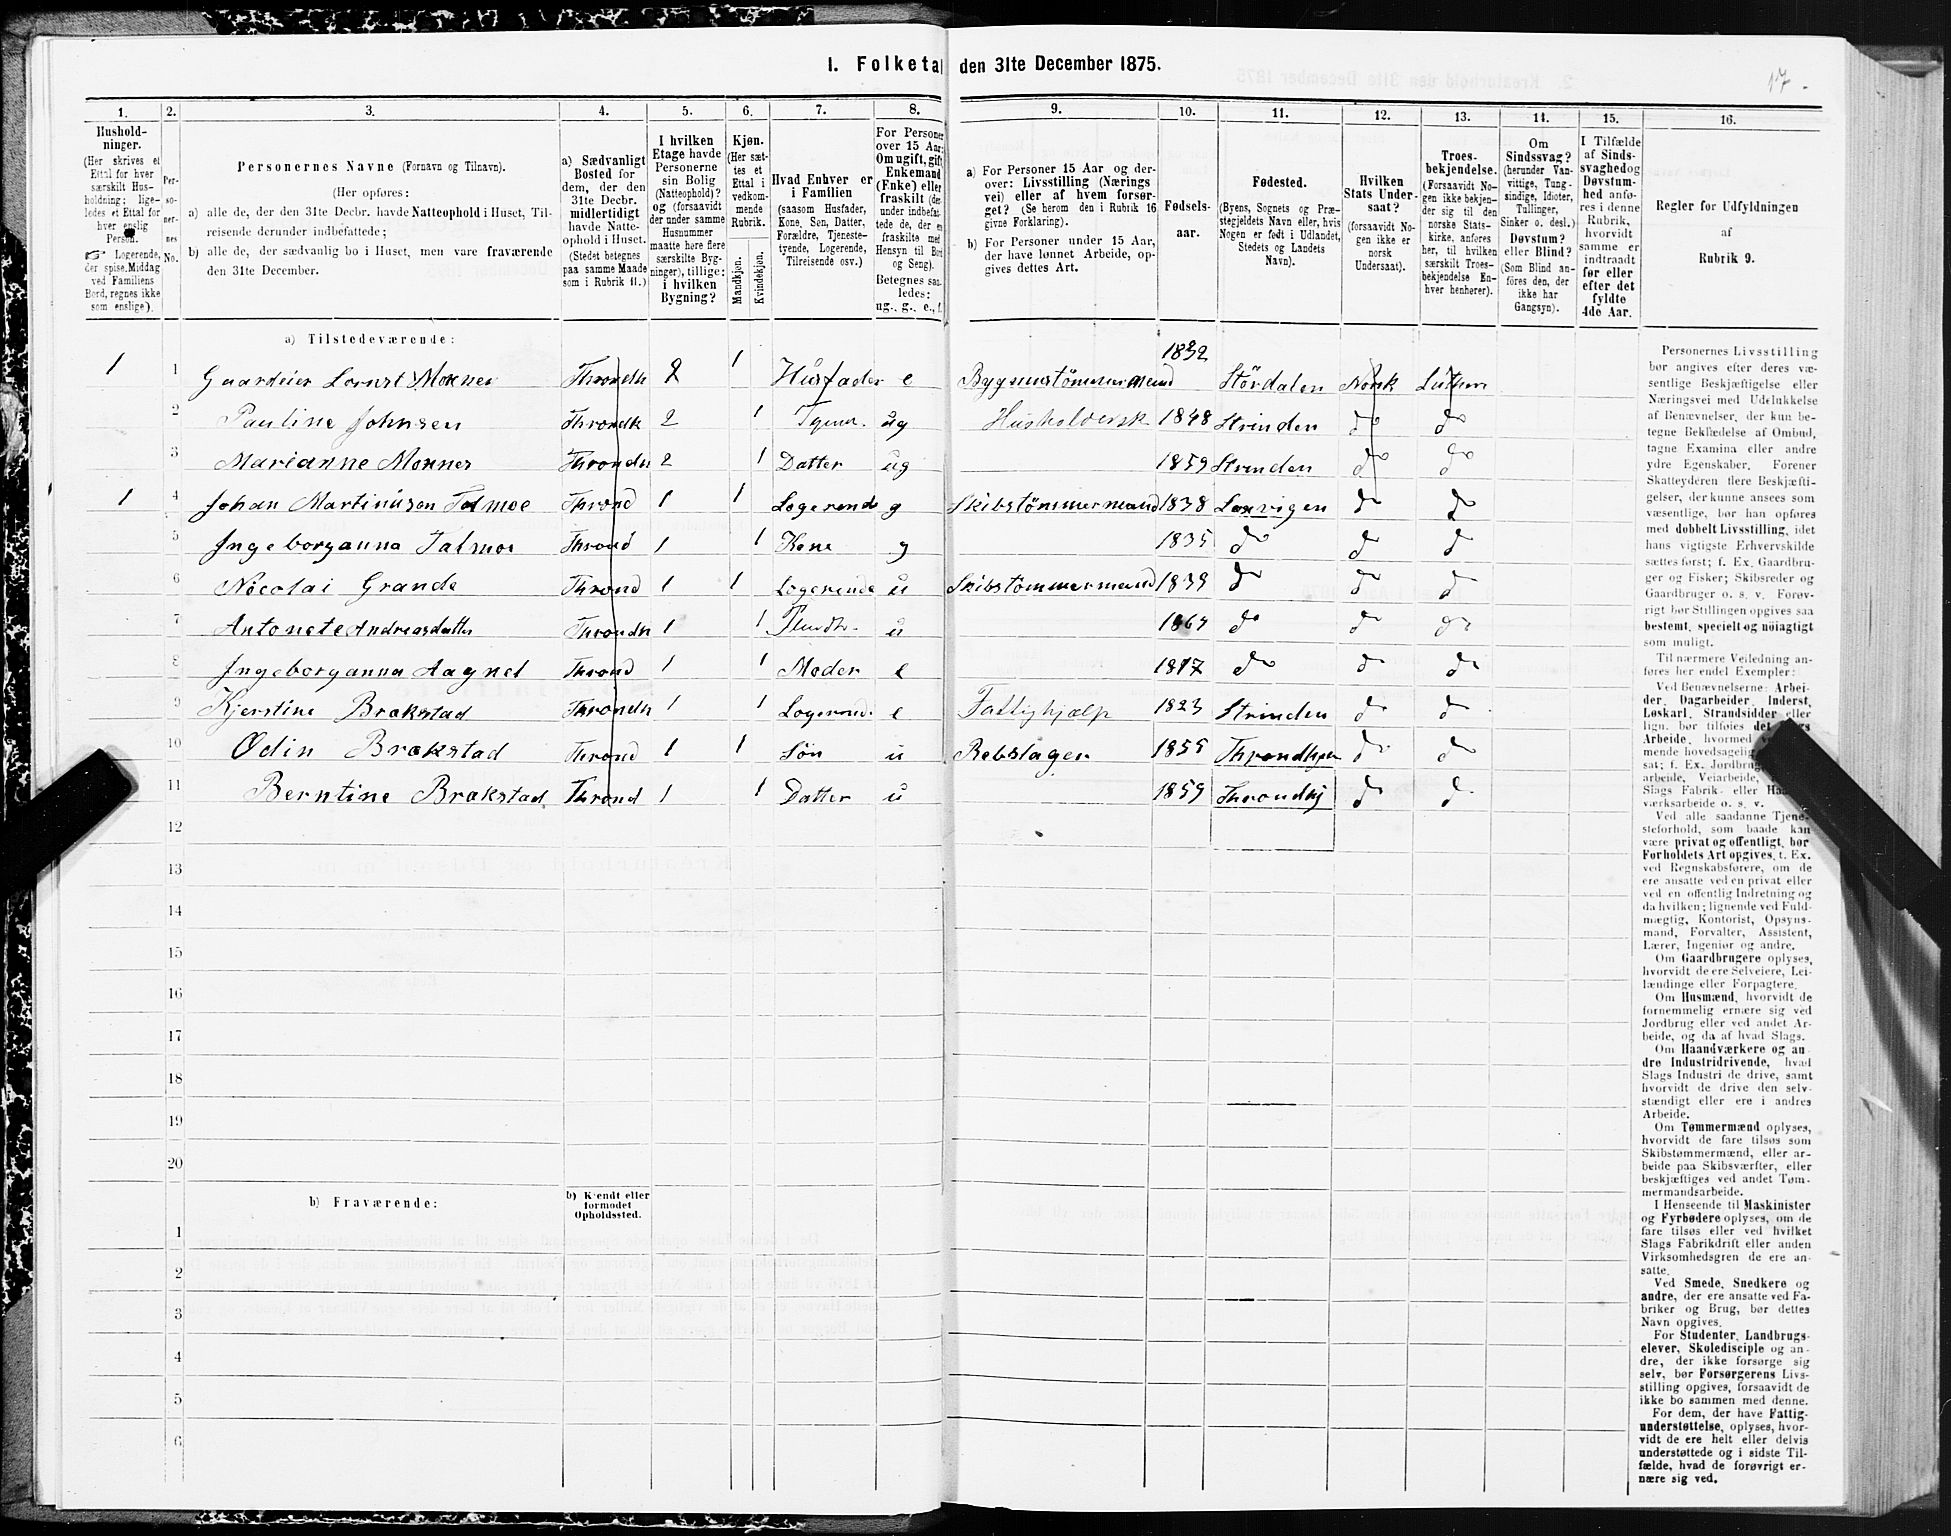 1. Folketal den 31te December 1875.
17.
1. 2. 3. 4. 5. 6. 7. 8. 9. 10. 11. 12. 13. 14. 15. 16.
Hushold-
ninger.
(Her skrives et
Ettal for hver
særskilt Hus-
holdning; lige-
ledes et Ettal for
hver enslig
Person.
☞ Logerende,
der spise Middag
ved Familiens
Bord, regnes ikke
som enslige).
Per-
so-
ner-
nes
No.
Personernes Navne (Fornavn og Tilnavn).
(Her opføres:
a) alle de, der den 31te Decbr. havde Natteophold i Huset, Til-
reisende derunder indbefattede;
b) alle de, der sædvanlig bo i Huset, men vare fraværende
den 31te December.
a) Sædvanligt
Bosted for
dem, der den
31te Decbr.
midlertidigt
havde Natte-
ophold i Huset.
(Stedet betegnes
paa samme Maade
som i Rubrik 11.)
I hvilken
Etage havde
Personerne
sin Bolig
(Natteophold)?
og (forsaavidt
der under samme
Husnummer
maatte høre flere
særskilte Byg-
ninger), tillige:
i hvilken
Bygning?
Kjøn.
(Her sæt-
tes et
Ettal i
vedkom-
mende
Rubrik.
Mandkjøn.
Kvindekjøn.
Hvad Enhver er
i Familien
(saasom Husfader,
Kone, Søn, Datter,
Forældre, Tjeneste-
tyende, Logerende,
Tilreisende osv.)
For Personer
over 15 Aar:
Om ugift, gift,
Enkemand
(Enke) eller
fraskilt (der-
under indbefat-
tede de, der ere
fraskilte med
Hensyn til Bord
og Seng).
Betegnes saa-
ledes:
ug., g., e., f.
a) For Personer 15 Aar og der-
over: Livsstilling (Nærings
vei) eller af hvem forsør-
get? (Se herom den i Rubrik 16
givne Forklaring).
b) For Personer under 15 Aar,
der have lønnet Arbeide, op-
gives dettes Art.
Fødsels-
aar.
Fødested.
(Byens, Sognets og Præ-
stegjeldets Navn eller, hvis
Nogen er født i Udlandet,
Stedets og Landets
Navn).
Hvilken
Stats Under-
saat?
(forsaavidt No-
gen ikke er
norsk
Undersaat).
Troes-
bekjendelse.
(Forsaavidt No-
gen ikke bekjen-
der sig til den
norske Stats-
kirke, anføres
her, til hvilken
særskilt Troes-
bekjendelse En-
hver henhører).
Om
Sindssvag?
(herunder Van-
vittige, Tung-
sindige, Idioter,
Tullinger,
Sinker o. desl.)
Døvstum?
eller Blind?
(Som Blind an-
føres den, der
ikke har
Gangsyn).
I Tilfælde
af Sinds-
svaghed og
Døvstum-
hed anfø-
res i denne
Rubrik,
hvorvidt
samme er
indtraadt
før eller
efter det
fyldte
4de Aar.
Regler for Udfyldningen
af
Rubrik 9.
a) Tilstedeværende:
1 1 Monner Throndh 2 1 Husfader e Bygnustömmermand 1832 Stördalen Norsk Luthers
2 Pauline Johnsen Throndh 2 1 ug Husholdersk 1848 Strinden do do
3 Marianne Monner Throndh 2 1 Datter ug 1859 Strinden do do
1 4 Johan Martinusen Talmoe Thrond 1 1 Logerende g Skibstömmermand 1838 Lexvigen do do
5 Ingeborganna Talmoe Thrond 1 1 Kone g 1835 do do do
6 Nicolai Grande Thrond 1 1 Logerende u Skibstömmermand 1839 do do do
7 Antonete Andreasdatter Throndh 1 1 Pleiedtr. u do do do
8 Ingeborganna Aagnet Thrond 1 1 Moder e 1817 do do do
9 Kjerstine Brækstad Throndh 1 1 Logerend. e Fattighjælp 1823 Strinden do do
10 Odin Brækstad Thrond 1 1 Sön u Rebslager 1855 Throndhjem do do
11 Berntine Brækstad Thrond 1 1 Datter u 1859 Throndhj do do
12
13
14
15
16
17
18
19
20
b) Fraværende:
b) Kjendt eller
formodet
Opholdssted.
1
2
3
4
5
6
Personernes Livsstilling
bør angives efter deres væ-
sentlige Beskjæftigelse eller
Næringsvei med Udelukkelse
af Benævnelser, der kun be-
tegne Beklædelse af Ombud,
tagne Examina eller andre
ydre Egenskaber. Forener
Skatteyderen flere Beskjæfti-
gelser, der kunne ansees som
væsentlige, bør han opføres
med dobbelt Livsstilling, idet
hans vigtigste Erhvervskilde
sættes først; f. Ex. Gaardbru-
ger og Fisker; Skibsreder og
Gaardbruger o. s. v. Forøv-
rigt bør Stillingen opgives saa
bestemt, specielt og nøiagtigt
som muligt.
Til nærmere Veiledning an-
føres her endel Exempler:
Ved Benævnelserne: Arbei-
der, Dagarbeider, Inderst,
Løskarl, Strandsidder eller
lign. bør tilføies det
Arbeide, hvormed
mende hovedsagelig
sat; f. Ex. Jordbrug
arbeide, Veiarbeide,
Slags Fabrik- eller
værksarbeide o. s. v.
Ved alle saadanne Tjene-
steforhold, som baade kan
være privat og offentligt, bør
Forholdets Art opgives, t. Ex.
ved Regnskabsførere, om de
ere ansatte ved en privat eller
ved en offentlig Indretning og
da hvilken; lignende ved Fuld-
mægtig, Kontorist, Opsyns-
mand, Forvalter, Assistent,
Lærer, Ingeniør og andre.
Om Gaardbrugere oplyses,
hvorvidt de ere Selveiere, Lei-
lændinge eller Forpagtere.
Om Husmænd, hvorvidt de
fornemmelig ernære sig ved
Jordbrug eller ved andet Ar-
beide, og da af hvad Slags.
Om Haandværkere og an-
dre Industridrivende, hvad
Slags Industri de drive, samt
hvorvidt de drive den selv-
stændigt eller ere i andres
Arbeide.
Om Tømmermænd oplyses,
hvorvidt de fare tilsøs som
Skibstømmermænd, eller ar-
beide paa Skibsværfter, eller
beskjæftiges ved andet Tøm-
mermandsarbeide.
I Henseende til Maskinister
og Fyrbødere oplyses, om de
fare tilsøs eller ved hvilket
Slags Fabrikdrift eller anden
Virksomhedsgren de ere an-
satte.
Ved Smede, Snedkere og
andre, der ere ansatte ved Fa-
briker og Brug, bør dettes
Navn opgives.
For Studenter, Landbrugs-
elever, Skoledisciple og an-
dre, der ikke forsørge sig
selv, bør Forsørgerens Livs-
stilling opgives, forsaavidt de
ikke bo sammen med denne.
For dem, der have Fattig-
understøttelse, oplyses, hvor-
vidt de ere helt eller delvis
understøttede og i sidste Til-
fælde, hvad de forøvrigt er-
nære sig ved.